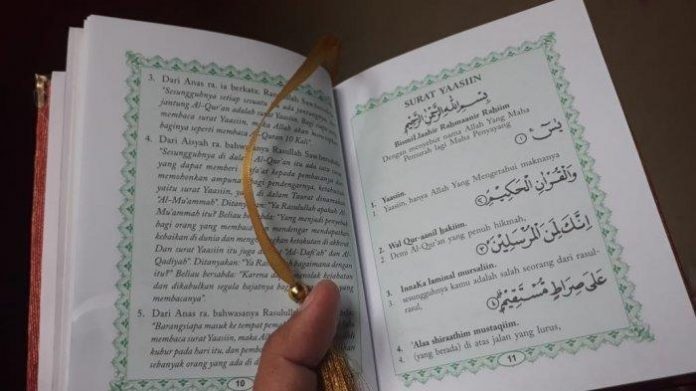 3. Dari Anas ra, ia berkata, Rasulullah
"Sesungguhnya setiap sesuatu ada
jantung Al-Qur'an adalah surat Yaasiin,
membaca surat Yaasiin, maka Allah akan
baginya seperti membaca Al-Quran 10 Kali".
4. Dari Aisyah ra, bahwasanya Rasullah Saw
"Sesungguhnya di dalam Al-Qur'an itu ada satu
yang dapat memberi kepada pembacanya dan
ampunan bagi pendengarnya,
yaitu surat Yaasiin, yang di dalam Taurat dinamakan
"Al-Mu'ammah". Ditanyakan: "Ya Rasulullah apakah Al-
Mu'ammah itu? Beliau bersabda: "Yang menjadi
bagi orang yang membacanya dan mendapatkan
kebaikan di dunia dan menolak di akhirat
Dan surat Yaasiin itu juga dan Al-
Qadiyah". Ditanyakan: "Ya Rasulullah bagaimana dengan
itu? Beliau bersabda: "Karena dapat menolak kejahatan
dan dikabulkan segala hajatnya bagi orang yang
membacanya".
5. Dari Anas ra, bahwasanya Rasulullah
"Barangsiapa masuk ke tempat
membaca surat Yaasiin, maka
kubur pada hari itu, dan
sebanyak orang yang ada di
10
SURAT YAASIIN
بِسْمِ اللهِ الرَّحْمٰنِ الرَّحِيْمِ
Bismil laahir Rahmaanir Rahiim
Dengan menyebut nama Allah Yang Maha
Pemurah lagi Maha Penyayang
يٰسٓ ۝١
1. Yaasiin.
1. Yaasiin, hanya Allah Yang Mengetahui maknanya
وَالْقُرْاٰنِ الْحَكِيْمِ ۝٢
2. Wal Qur-aanil hakiim.
2. Demi Al-Qur'an yang penuh hikmah,
اِنَّكَ لَمِنَ الْمُرْسَلِيْنَ ۝٣
3. Innaka laminal mursaliin.
3. sesungguhnya kamu adalah salah seorang dari rasul-
rasul,
عَلٰى صِرَاطٍ مُّسْتَقِيْمٍ ۝٤
4. 'Alaa shiraathim mustaqiim.
4. (yang berada) di atas jalan yang lurus,
11